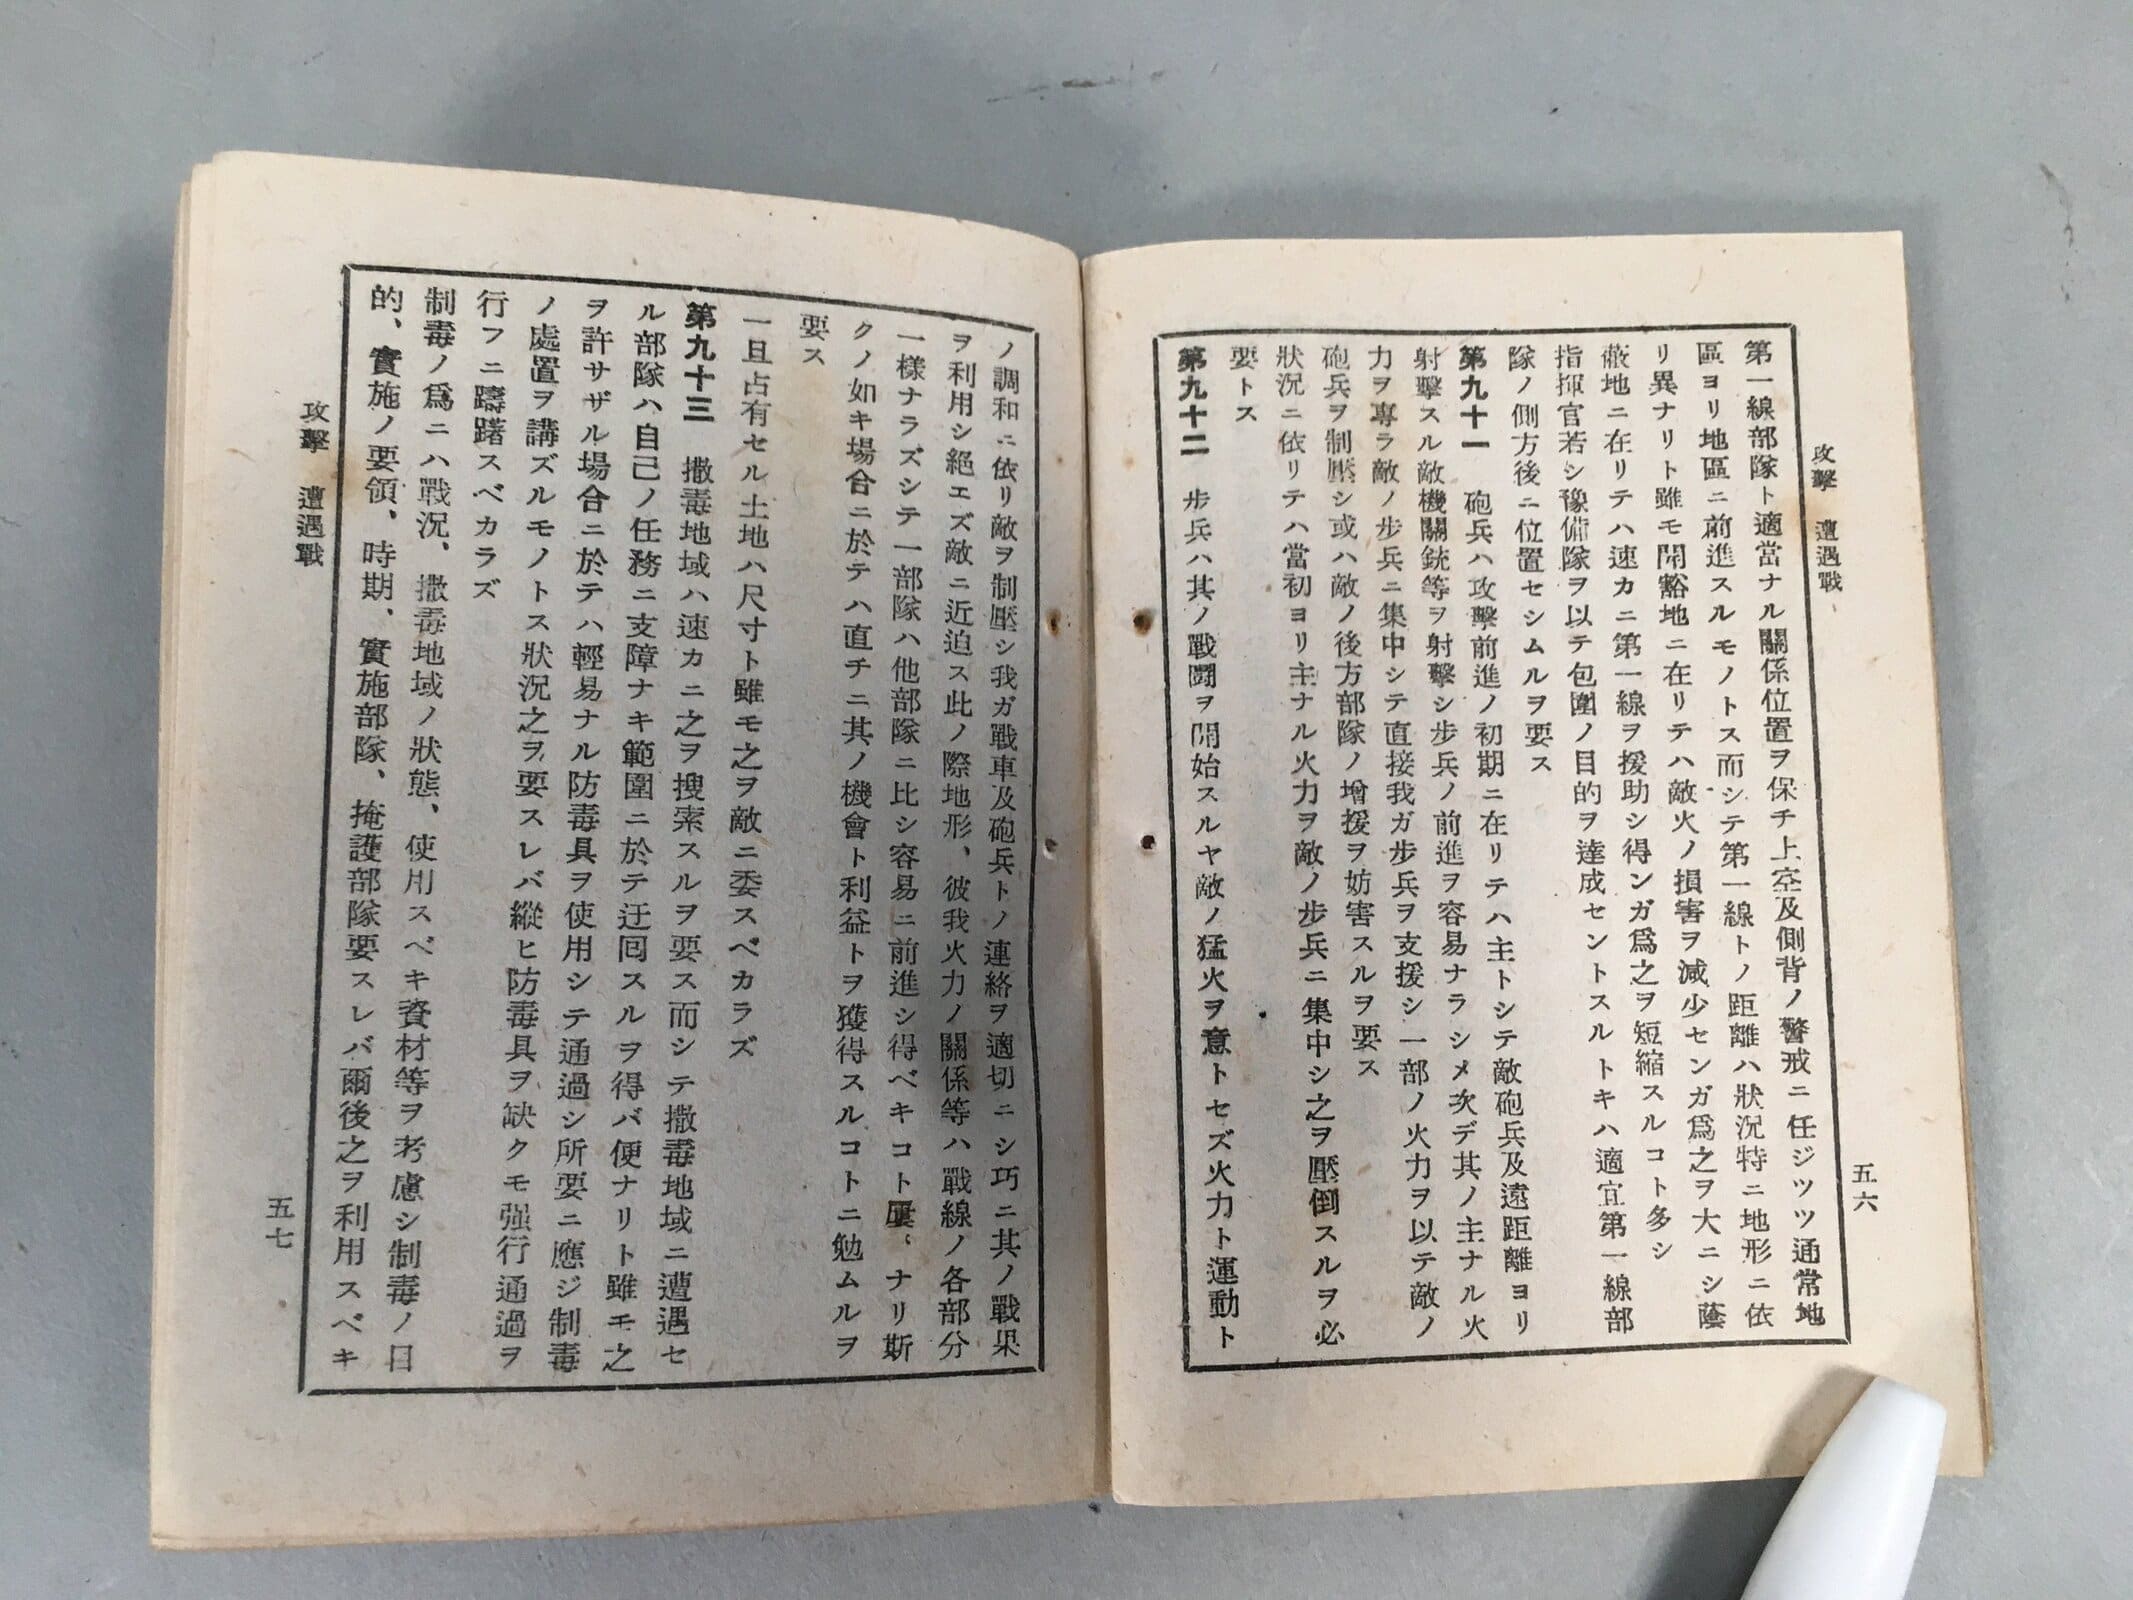 攻擊 遭遇戰
五六
第一線部隊ト適當ナル關係位置ヲ保チ上空及側背ノ警戒ニ任ジツツ通常地
區ヨリ地區ニ前進スルモノトス而シテ第一線トノ距離ハ狀況特ニ地形ニ依
リ異ナリト雖モ開豁地ニ在リテハ敵火ノ損害ヲ減少センガ爲之ヲ大ニシ蔭
蔽地ニ在リテハ速カニ第一線ヲ援助シ得ンガ爲之ヲ短縮スルコト多シ
指揮官若シ豫備隊ヲ以テ包圍ノ目的ヲ達成セントスルトキハ適宜第一線部
隊ノ側方後ニ位置セシムルヲ要ス
第九十一 砲兵ハ攻擊前進ノ初期ニ在リテハ主トシテ敵砲兵及遠距離ヨリ
射擊スル敵機關銃等ヲ射擊シ步兵ノ前進ヲ容易ナラシメ次デ其ノ主ナル火
力ヲ專ラ敵ノ步兵ニ集中シテ直接我ガ步兵ヲ支援シ一部ノ火力ヲ以テ敵ノ
砲兵ヲ制壓シ或ハ敵ノ後方部隊ノ增援ヲ妨害スルヲ要ス
狀況ニ依リテハ當初ヨリ主ナル火力ヲ敵ノ步兵ニ集中シ之ヲ壓倒スルヲ必
要トス
第九十二 步兵ハ其ノ戰鬪ヲ開始スルヤ敵ノ猛火ヲ意トセズ火力ト運動ト
ノ調和ニ依リ敵ヲ制壓シ我ガ戰車及砲兵トノ連絡ヲ適切ニシ巧ニ其ノ戰果
ヲ利用シ絕エズ敵ニ近迫ス此ノ際地形、彼我火力ノ關係等ハ戰線ノ各部分
一樣ナラズシテ一部隊ハ他部隊ニ比シ容易ニ前進シ得ベキコト屢〻ナリ斯
クノ如キ場合ニ於テハ直チニ其ノ機會ト利益トヲ獲得スルコトニ勉ムルヲ
要ス
一旦占有セル土地ハ尺寸ト雖モ之ヲ敵ニ委スベカラズ
第九十三 撒毒地域ハ速カニ之ヲ搜索スルヲ要ス而シテ撒毒地域ニ遭遇セ
ル部隊ハ自己ノ任務ニ支障ナキ範圍ニ於テ迂囘スルヲ得バ便ナリト雖モ之
ヲ許サザル場合ニ於テハ輕易ナル防毒具ヲ使用シテ通過シ所要ニ應ジ制毒
ノ處置ヲ講ズルモノトス狀況之ヲ要スレバ縱ヒ防毒具ヲ缺クモ强行通過ヲ
行フニ躊躇スベカラズ
制毒ノ爲ニハ戰況、撒毒地域ノ狀態、使用スベキ資材等ヲ考慮シ制毒ノ目
的、實施ノ要領、時期、實施部隊、掩護部隊要スレバ爾後之ヲ利用スベキ
攻擊 遭遇戰
五七